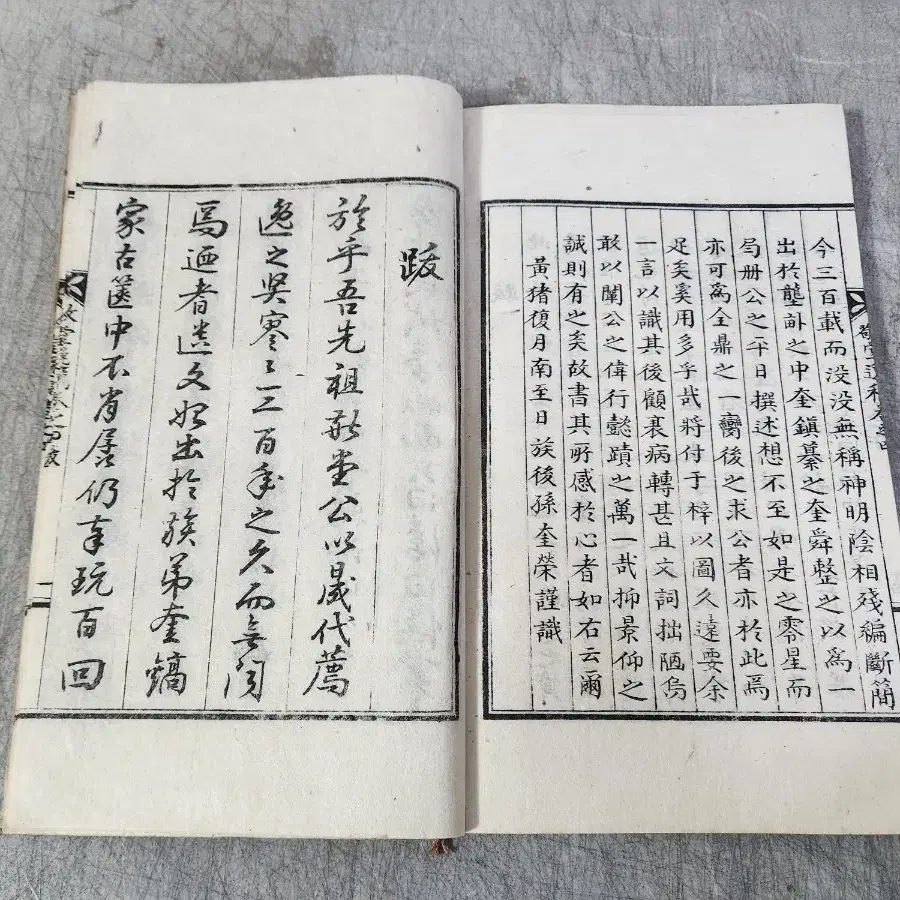 今三百載而没没無稱神明陰相殘編斷簡
出於壟訃之中奎鎭纂之奎舜整之以爲一
局册公之平日撰述想不至如是之零星而
亦可爲全鼎之一臠後之求公者亦於此焉
足矣奚用多乎哉將付于梓以圖久遠要余
一言以識其後顧衰病轉甚且文詞拙陋烏
敢以闡公之偉行懿蹟之萬一哉抑景仰之
誠則有之矣故書其所感於心者如右云爾
黃猪復月南至日族後孫奎榮謹識
跋
於乎吾先祖敬堂公以晟代薦
逸之吳寥三百年之久而無聞
焉迺者遺文始出於族弟奎鎬
家古篋中不肖孱仍奉玩百回